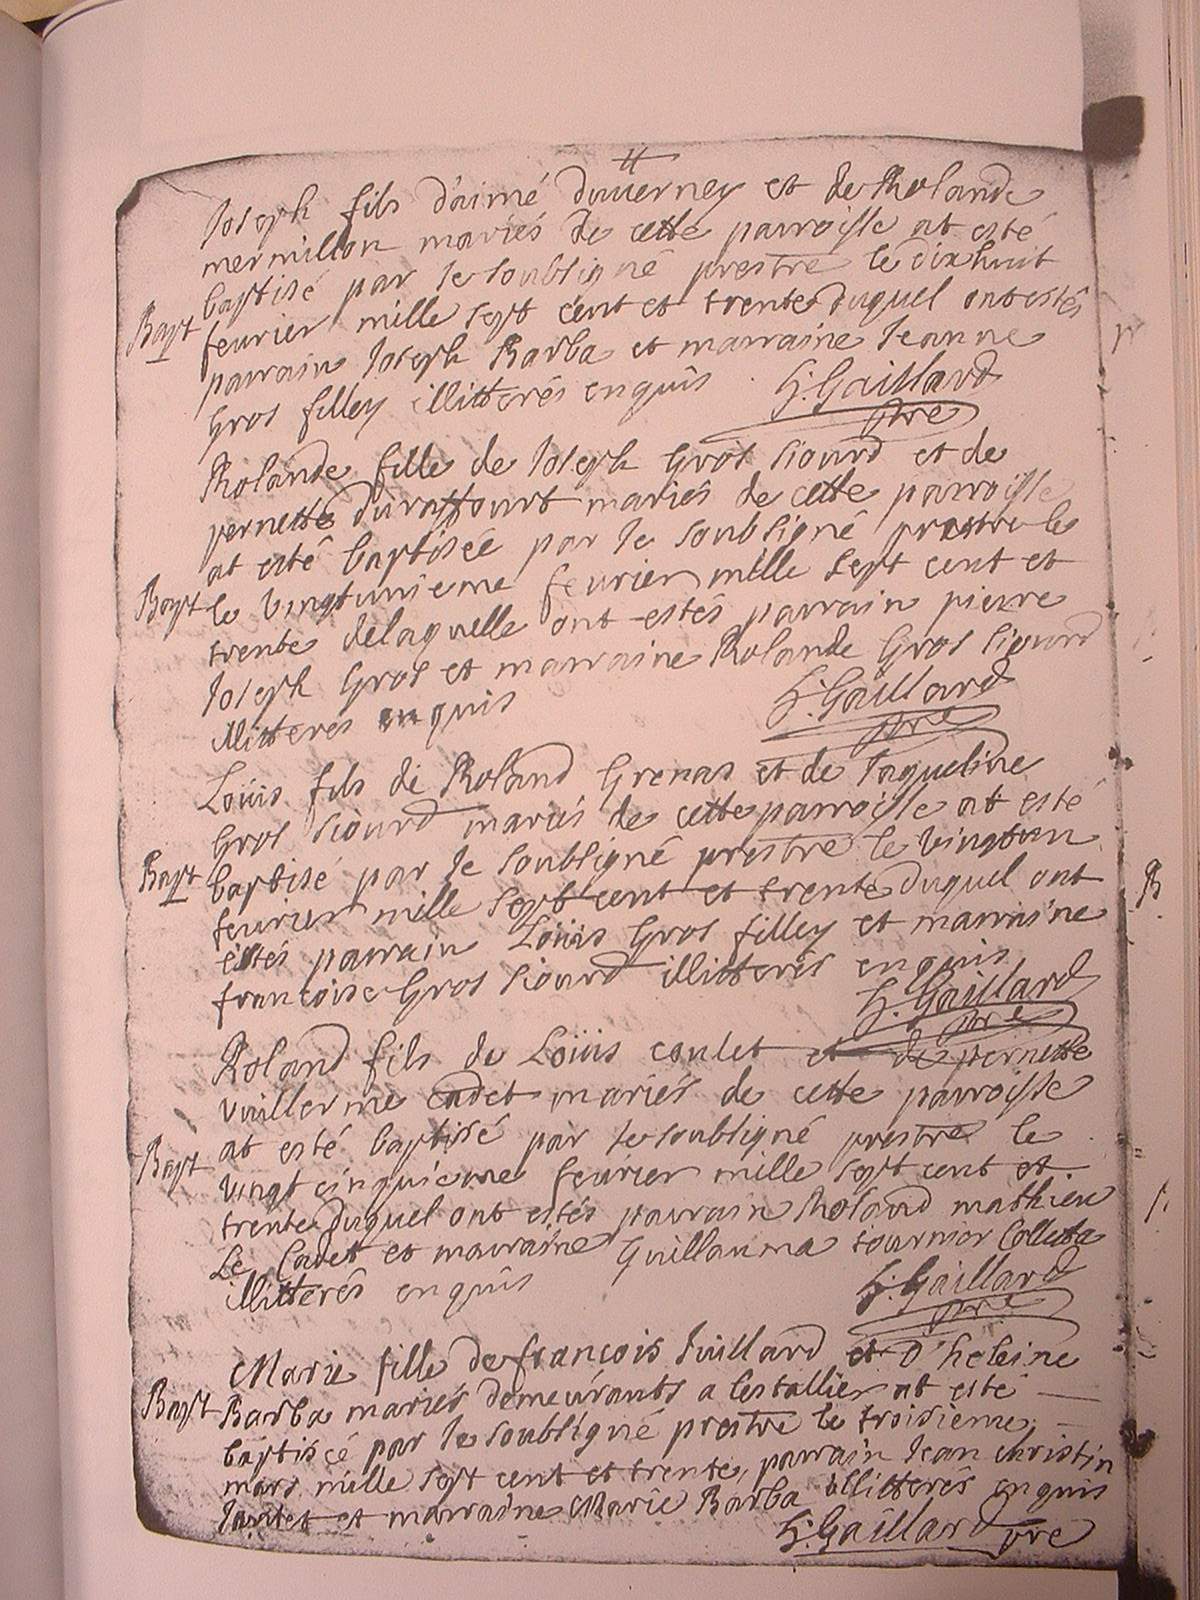 Joseph fils d'aimé duuerney et de Rolande
mermillon mariés de cette parroisse at esté
baptisé par ie soubsigné prestre le dixhuit
Bapt feurier mille sept cent et trente duquel ont estés
parrain Joseph Barba et marraine Jeanne
Gros filley illitterés enquis G. Gaillard
pre
Rolande fille de Joseph Gros Siourd et de
pernette duraffourt mariés de cette parroisse
at esté baptisée par ie soubsigné prestre le
Bapt le vingtunieme feurier mille sept cent et
trente delaquelle ont estés parrain pierre
Joseph Gros et marraine Rolande Gros Siourd
illitteres enquis G. Gaillard
pre
Loüis fils de Roland Grenas et de Jaqueline
Gros Siourd mariés de cette parroisse at esté
Bapt baptisé par ie soubsigné prestre le vingtun
feurier mille sept cent et trente duquel ont
estés parrain Loüis Gros filley et marraine
francoise Gros Siourd illitterés enquis
G. Gaillard
pre
Roland fils de Loüis coulet et de pernette
vuillerme cadet mariés de cette parroisse
at esté baptisé par ie soubsigné prestre le
Bapt vingt cinquieme feurier mille sept cent et
trente duquel ont estés parrain Roland mathieu
Le Cadet et marraine Guillauma tournier Colleta
illitterés enquis G. Gaillard
pre
Marie fille de françois Juillard et d'heleine
Bapt Barba mariés demeurants a lestallier at esté
baptisée par ie soubsigné prestre le troisieme
mars mille sept cent et trente, parrain Jean christin
Jantet et marraine Marie Barba illitterés enquis
G. Gaillard pre